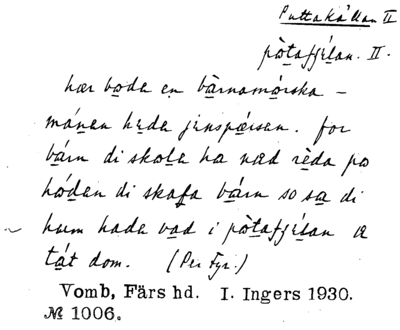 Puttakällan II
pòtafjẹ́lan. II.
hær boda en bàrnamórska –
mánen heda jenspǽrsen. for
bárn di skola ha næd rèda po
hóden di skafa bárn so sa di
hum hada vad i pòtafjẹ́lan a
tát dom. (Per Fyr.)
Vomb, Färs hd. I. Ingers 1930.
№ 1006.